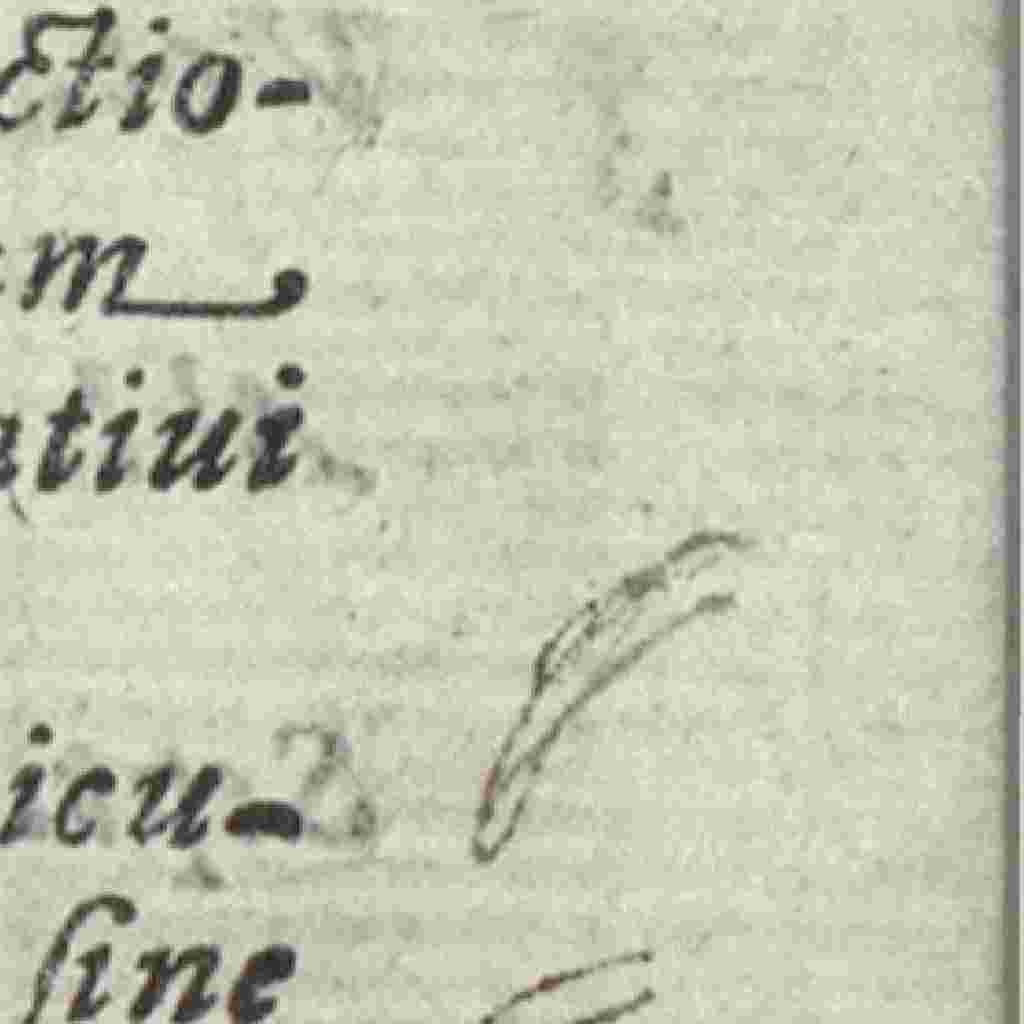 ctio-
m
atiui
icu-
ſine